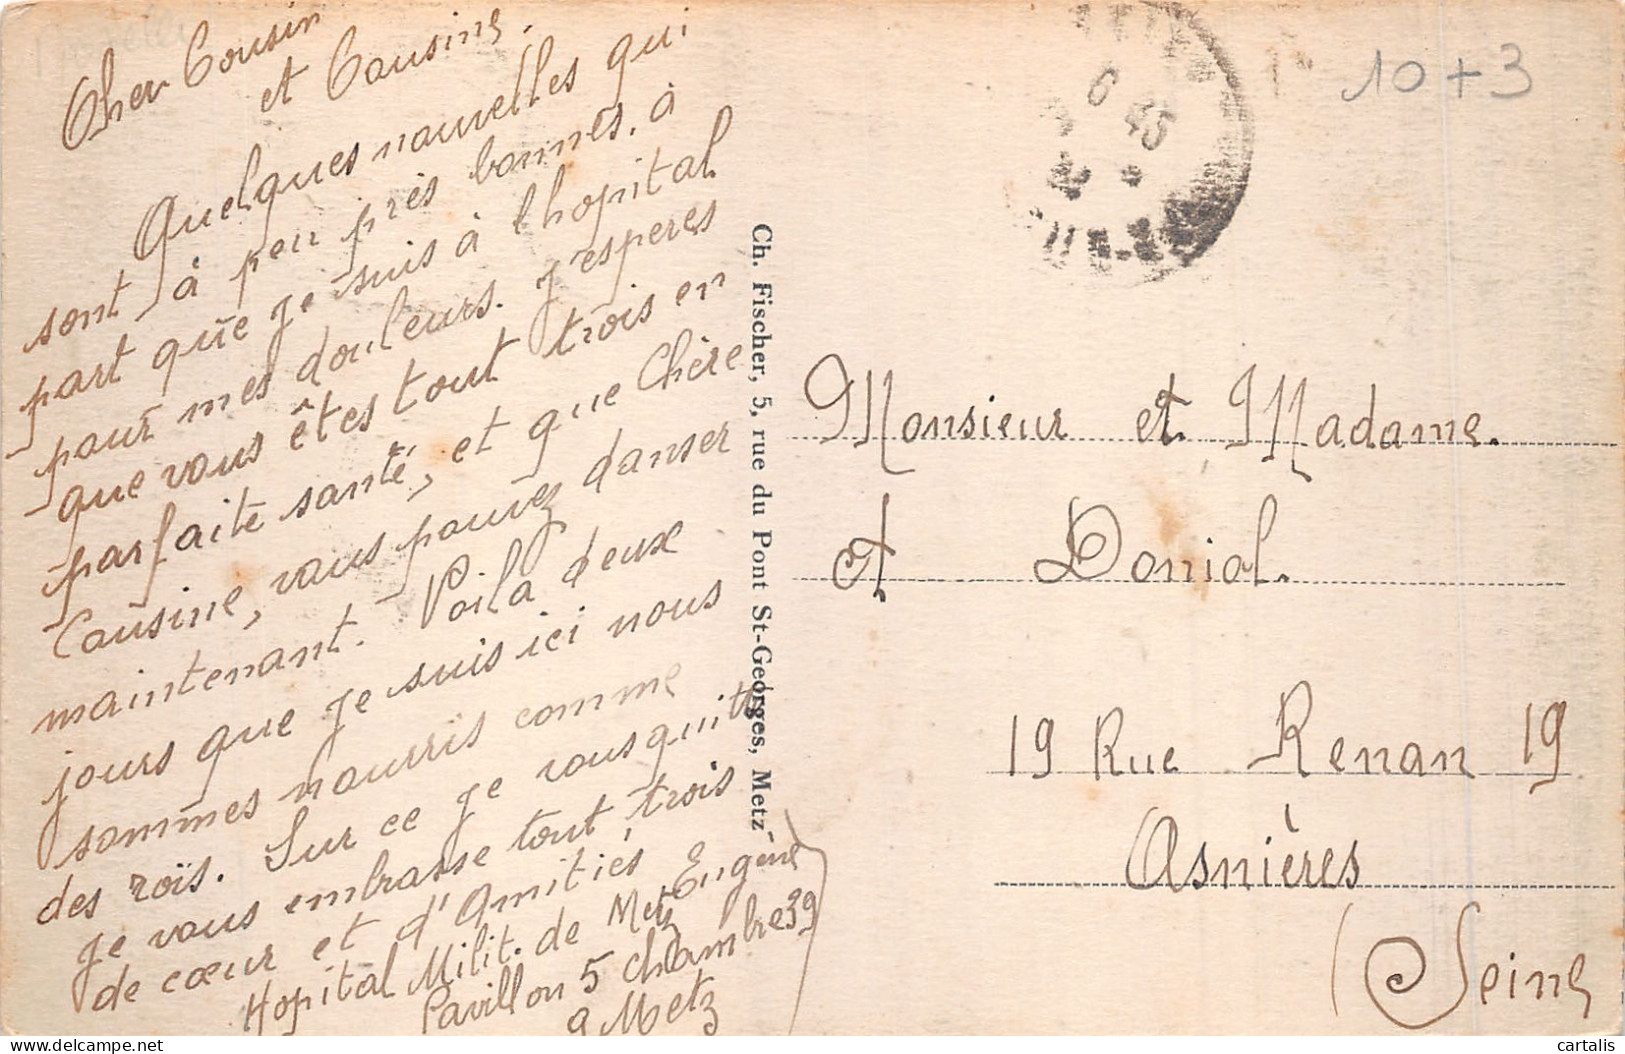 Cher Cousin
et Cousine.
Quelques nouvelles qui
sont à peu près bonnes. à
part que je suis à l'hopital
pour mes douleurs. J'esperes
que vous êtes tout trois en
parfaite santé, et que Chère
Cousine, vous pouvez danser
maintenant. Voila deux
jours que je suis ici nous
sommes nourris comme
des rois. Sur ce je vous quitte
je vous embrasse tout trois
de cœur et d'Amitiés
Eugène
Hopital Milit. de Metz
Pavillon 5 chambre 39
a Metz
Ch. Fischer, 5, rue du Pont St-Georges, Metz
6 45
10 + 3
Monsieur et Madame.
et Donial.
19 Rue Renan 19
Asnières
(Seine
cartalis
delcampe.net